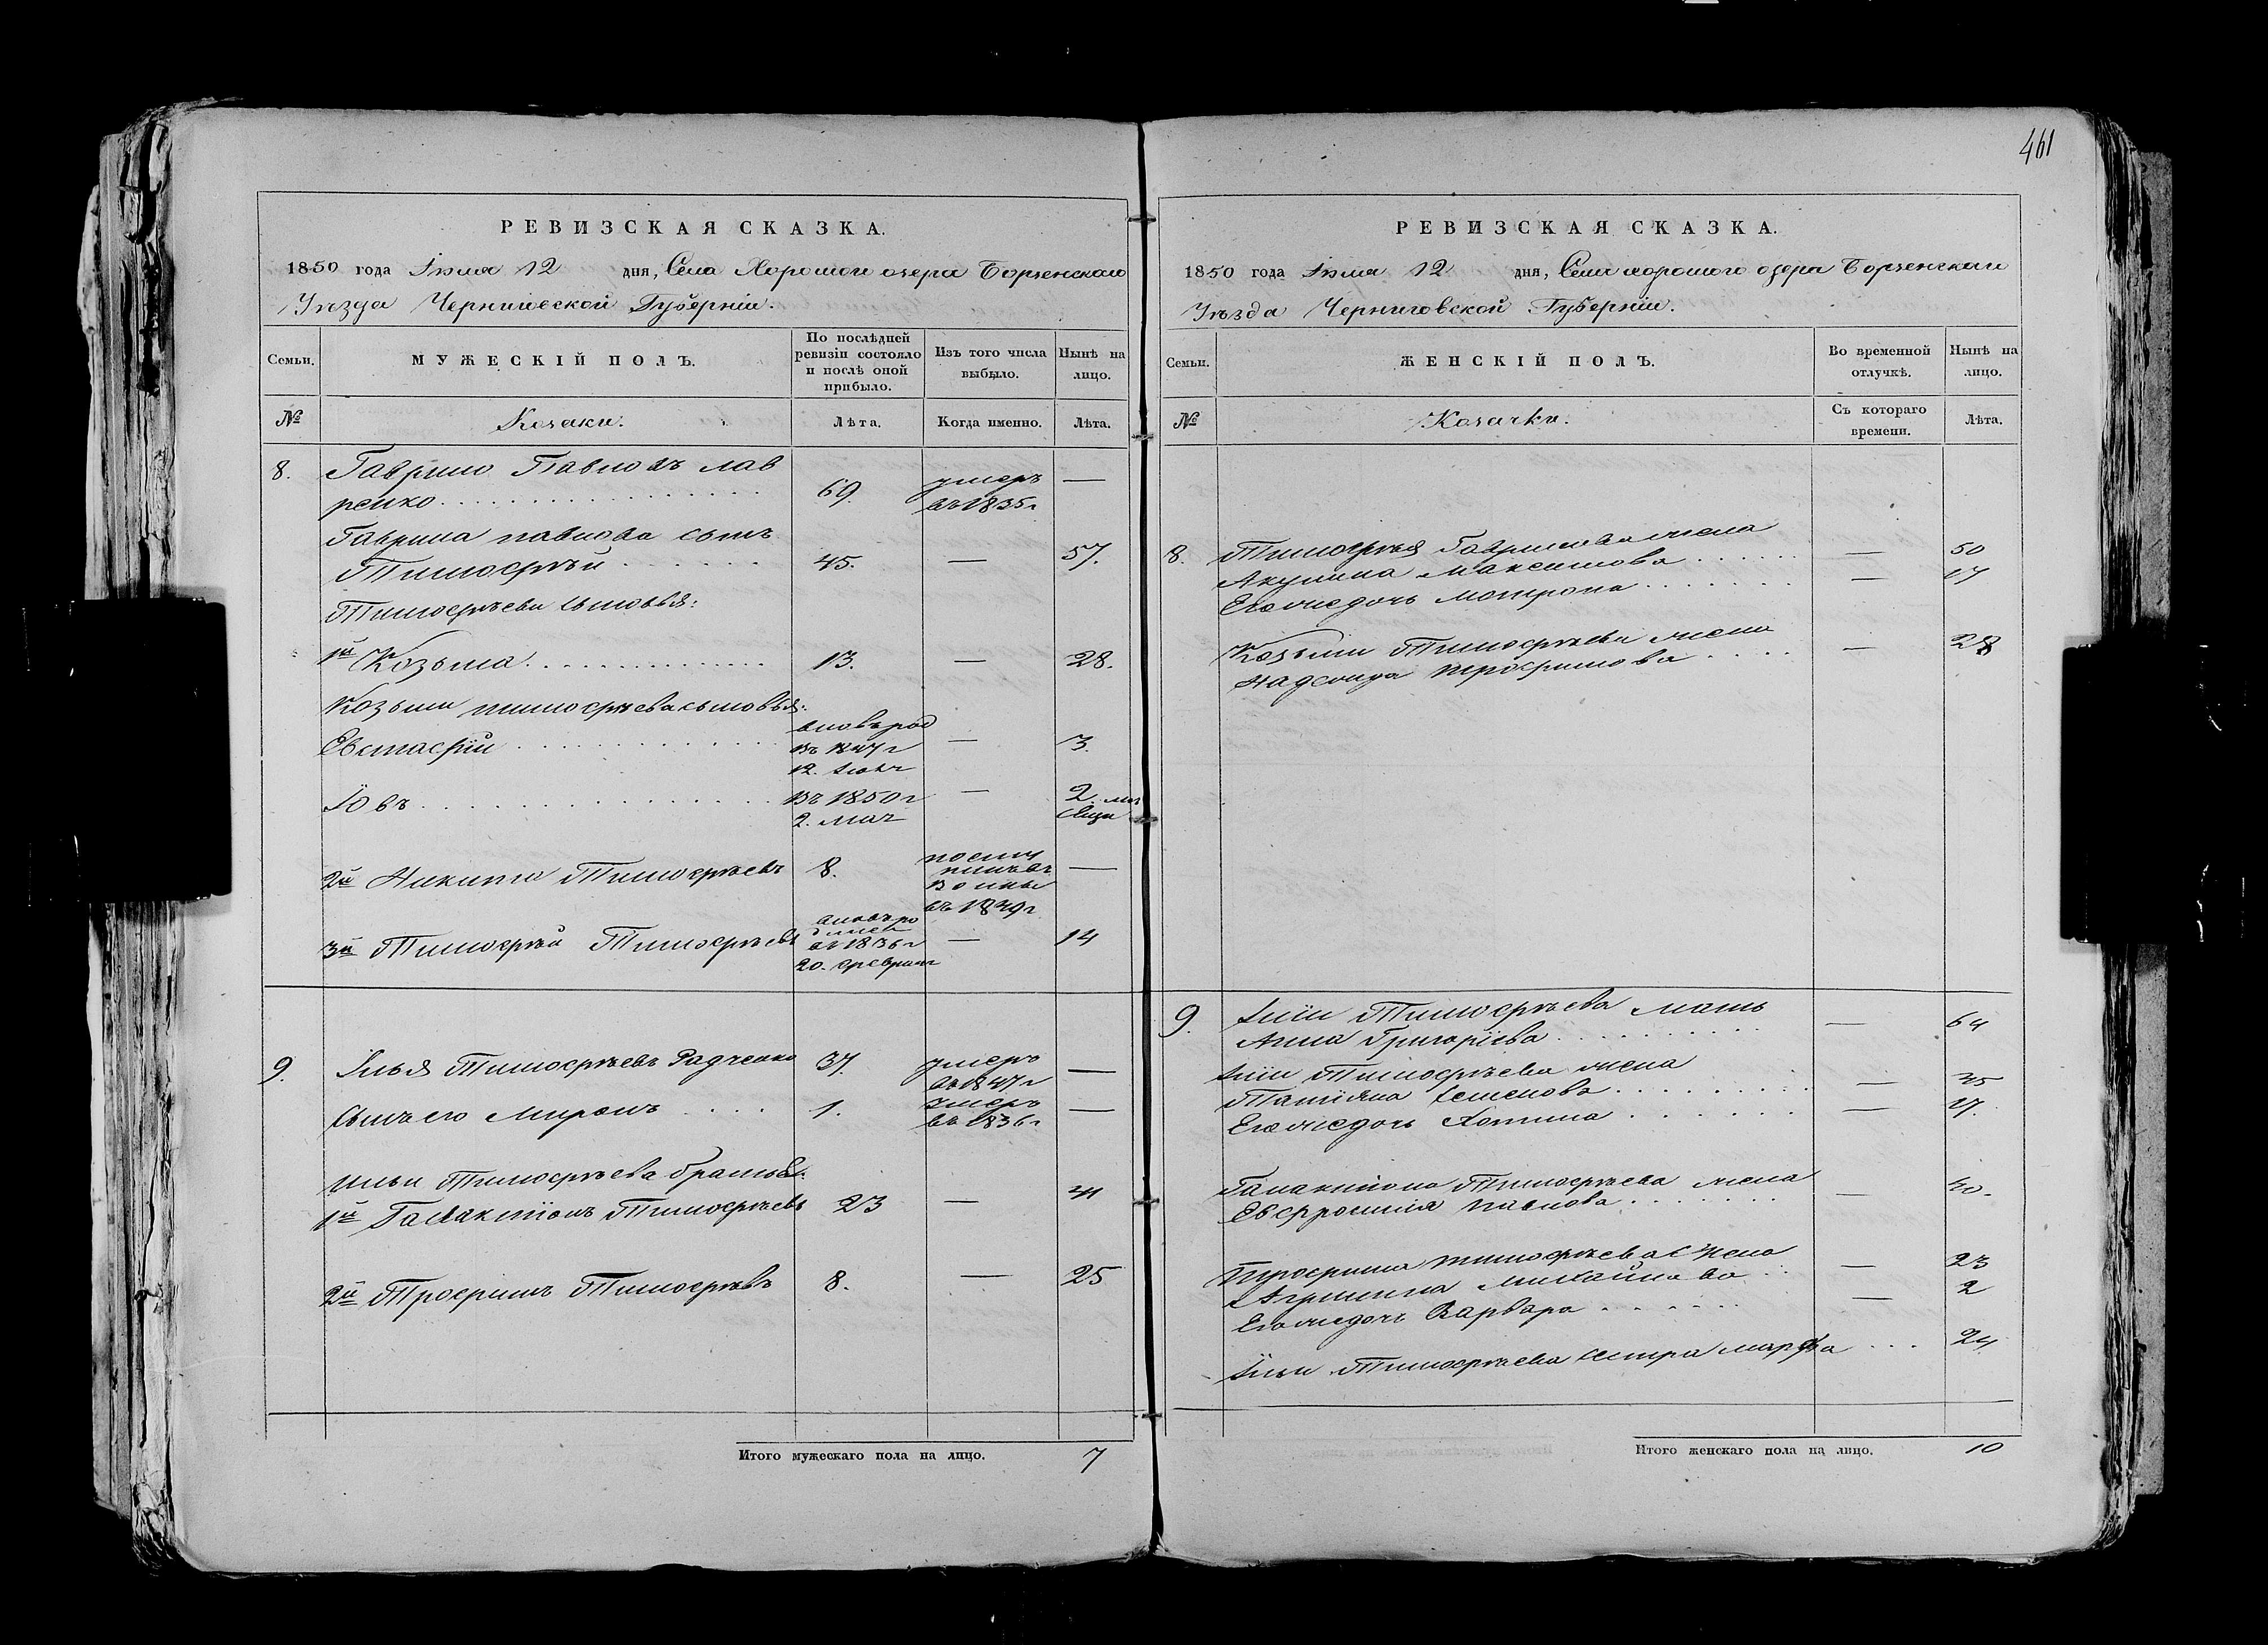 461
РЕВИЗСКАЯ СКАЗКА.
1850 года Іюля 12 дня, Села Хорошого озера Борзенского
Уѣзда Черниговской Губерніи.
Семьи.
МУЖЕСКІЙ ПОЛЪ.
По послѣдней ревизіи состояло и послѣ оной прибыло.
Изъ того числа выбыло.
Нынѣ на лицо.
№
Козаки.
Лѣта.
Когда именно.
Лѣта.
8. Гаврило Павловъ Лав
ренко 69. умеръ въ 1835 г —
Гаврила павлова сынъ
Тимофѣй 45. — 57.
Тимофѣева сыновья:
1й Козьма 13. — 28.
Козьмы тимофѣева сыновья:
Евстафій вновь род въ 1847 г 12. — 3.
Іовъ въ 1850 г 2. мая — 2. мѣ сяца
2й Никита Тимофѣевъ 8. въ 1849 г —
3й Тимофѣй Тимофѣевъ вновь ро дился въ 1836 г 20. февраля — 14
9. Илья Тимофѣевъ Радченко 37. умеръ въ 1847 г —
Сынъ его Миронъ 1. умеръ въ 1836 г —
Ильи Тимофѣева братья:
1й Галактіонъ Тимофѣевъ 23 — 41
2й Трофимъ Тимофѣевъ 8. — 25
Итого мужескаго пола на лицо. 7
РЕВИЗСКАЯ СКАЗКА.
1850 года Іюля 12 дня, Села хорошого озера Борзенского
Уѣзда Черниговской Губерніи.
Семьи.
ЖЕНСКІЙ ПОЛЪ.
Во временной отлучкѣ.
Нынѣ на лицо.
№
Козачки.
Съ котораго времени.
Лѣта.
8. Тимофѣя Гаврилова жена
Акулина Максимова — 50
Его же дочь Мотрона — 17
Козьмы Тимофѣева жена
Надежда трофимова — 28
9. Ильи Тимофѣева мать
Анна Григоріева — 64
Ильи Тимофѣева жена
Татіяна Семенова — 45
Его же дочь — 17.
Галактіона Тимофѣева жена
Евфросинія павлова — 40.
Трофима тимофѣева жена
Агрипина Михайлова — 23
Его же дочь Варвара — 2
Ильи Тимофѣева сестра марфа 24
Итого женскаго пола на лицо. 10